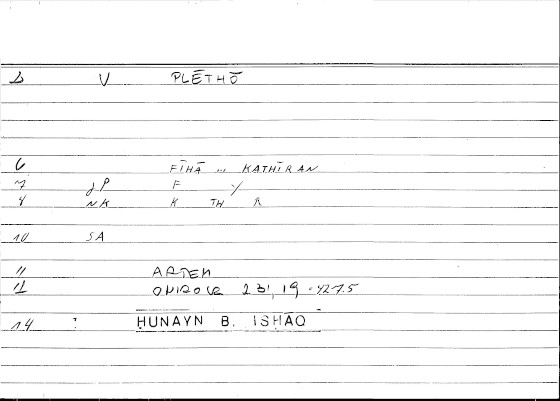 V PLĒTHŌ
6 FĪHĀ ... KATHĪRAN
7 JP F Y
8 NK K TH R
10 SA
11 ARTEM
12 ONIROCR 231, 19 - 427.5
14 : ḤUNAYN B. ISḤĀQ